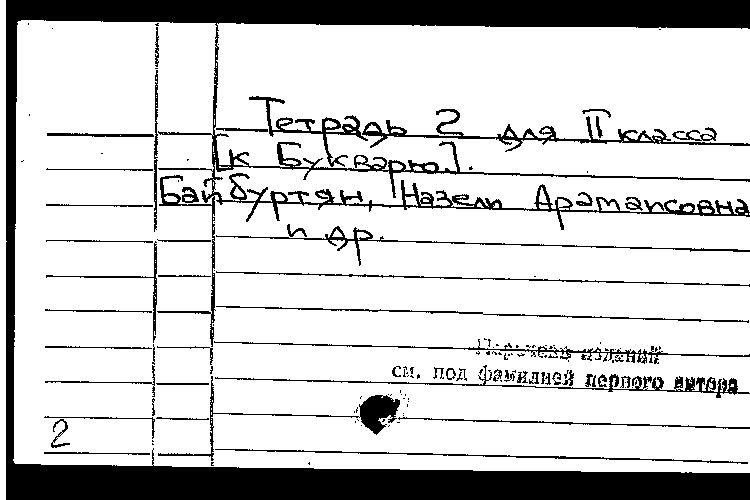 Тетрадь 2 для II класса
[к Букварю].
Байбуртян, Назели Арамаисовна
и др.
Перечень изданий
см. под фамилией первого автора
2